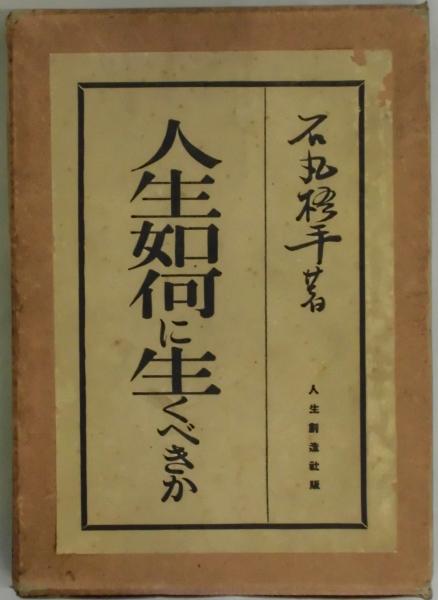 石丸梧平著
人生如何に生くべきか
人生創造社版